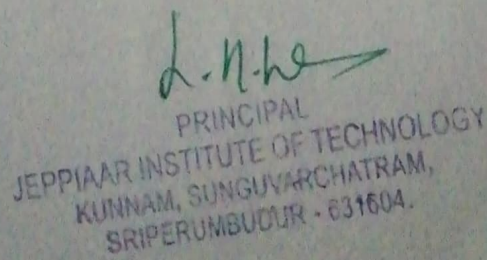 PRINCIPAL
JEPPIAAR INSTITUTE OF TECHNOLOGY
KUNNAM, SUNGUVARCHATRAM,
SRIPERUMBUDUR - 631604.